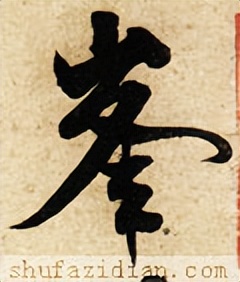 峯
shufazidian.com